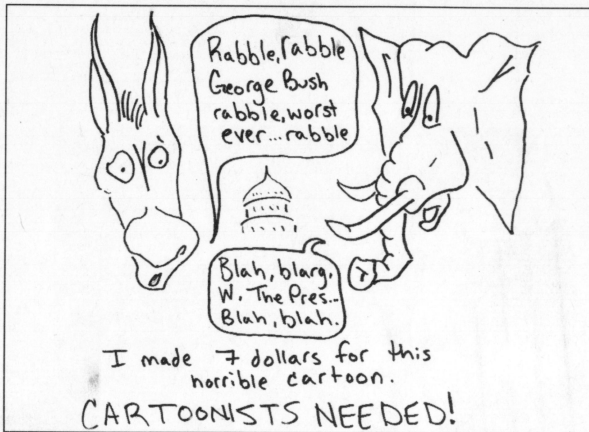 Rabble, rabble
George Bush
rabble, worst
ever... rabble
Blah, blarg,
W. The Pres...
Blah, blah.
I made 7 dollars for this
horrible cartoon.
CARTOONISTS NEEDED!